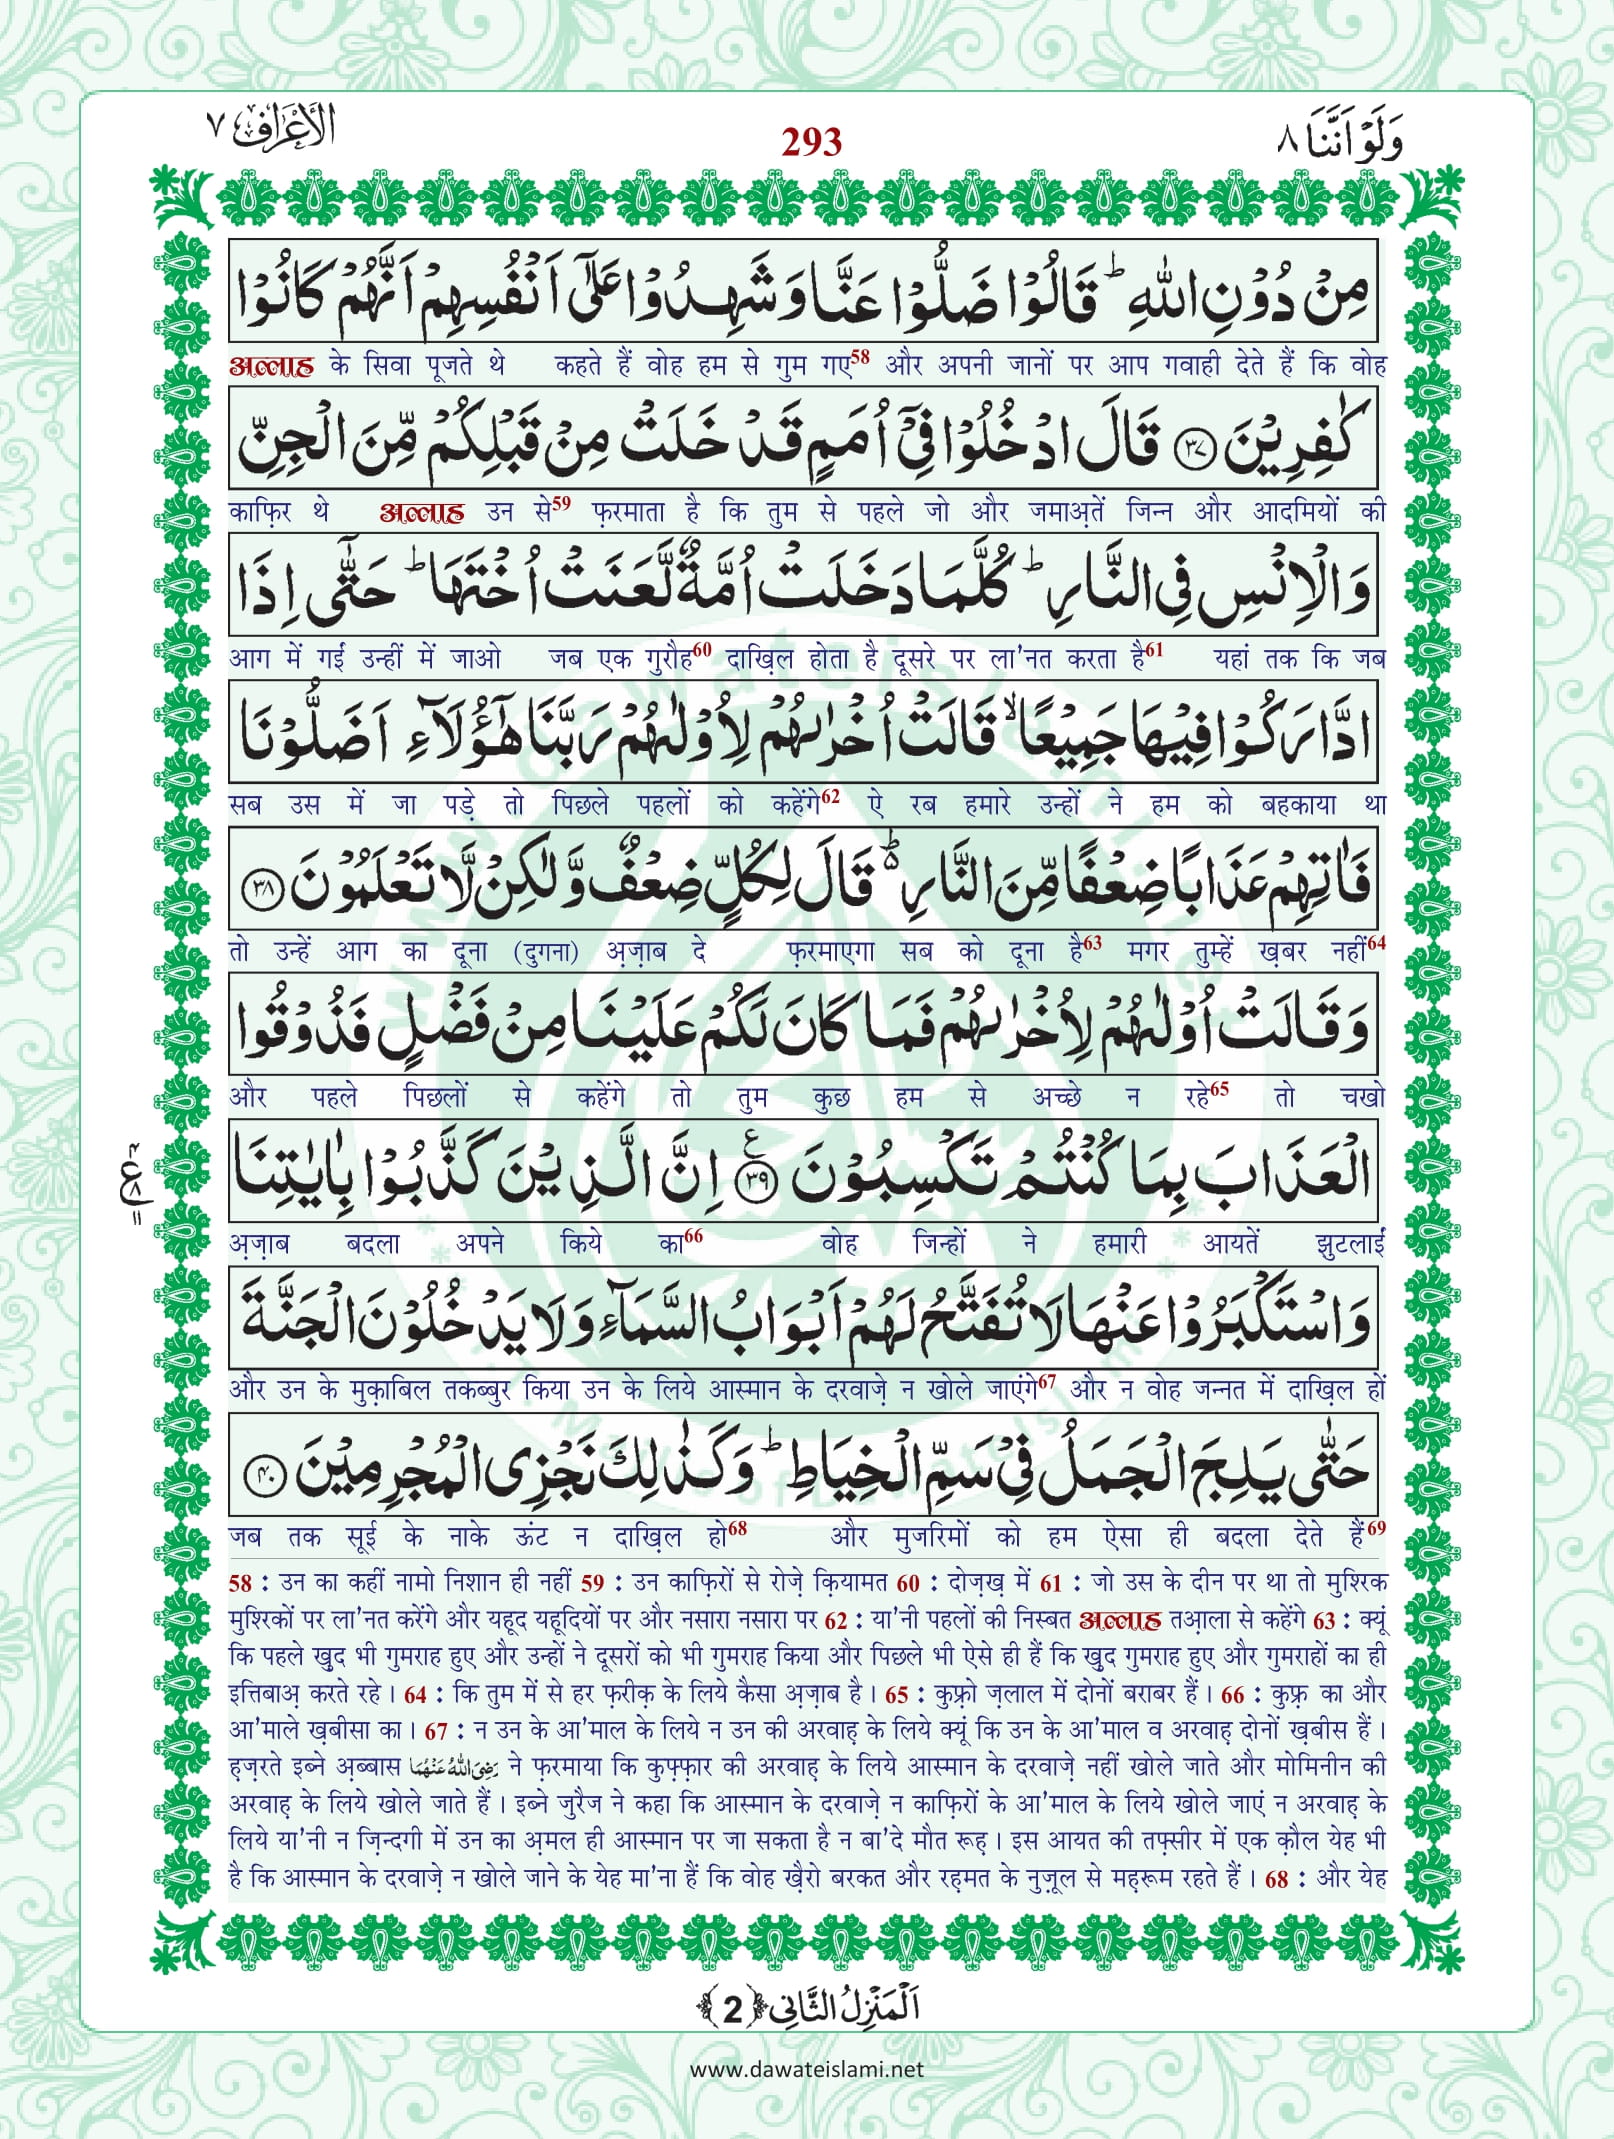 وَلَوْ اَنَّنَا ٨
293
الْاَعْرَاف ٧
مِنْ دُوْنِ اللّٰهِ ؕ قَالُوْا ضَلُّوْا عَنَّا وَ شَهِدُوْا عَلٰۤى اَنْفُسِهِمْ اَنَّهُمْ كَانُوْا
अल्लाह के सिवा पूजते थे कहते हैं वोह हम से गुम गए58 और अपनी जानों पर आप गवाही देते हैं कि वोह
كٰفِرِیْنَ ﴿۳۷﴾ قَالَ ادْخُلُوْا فِیْۤ اُمَمٍ قَدْ خَلَتْ مِنْ قَبْلِكُمْ مِّنَ الْجِنِّ
काफ़िर थे अल्लाह उन से59 फ़रमाता है कि तुम से पहले जो और जमाअ़तें जिन्न और आदमियों की
وَ الْاِنْسِ فِی النَّارِ ؕ كُلَّمَا دَخَلَتْ اُمَّةٌ لَّعَنَتْ اُخْتَهَا ؕ حَتّٰۤى اِذَا
आग में गईं उन्हीं में जाओ जब एक गुरौह60 दाख़िल होता है दूसरे पर ला'नत करता है61 यहां तक कि जब
ادَّارَكُوْا فِیْهَا جَمِیْعًا ۙ قَالَتْ اُخْرٰىهُمْ لِاُوْلٰىهُمْ رَبَّنَا هٰۤؤُلَآءِ اَضَلُّوْنَا
सब उस में जा पड़े तो पिछले पहलों को कहेंगे62 ऐ रब हमारे उन्हों ने हम को बहकाया था
فَاٰتِهِمْ عَذَابًا ضِعْفًا مِّنَ النَّارِ ؕ۬ قَالَ لِكُلٍّ ضِعْفٌ وَّ لٰكِنْ لَّا تَعْلَمُوْنَ ﴿۳۸﴾
तो उन्हें आग का दूना (दुगना) अ़ज़ाब दे फ़रमाएगा सब को दूना है63 मगर तुम्हें ख़बर नहीं64
وَ قَالَتْ اُوْلٰىهُمْ لِاُخْرٰىهُمْ فَمَا كَانَ لَكُمْ عَلَیْنَا مِنْ فَضْلٍ فَذُوْقُوا
और पहले पिछलों से कहेंगे तो तुम कुछ हम से अच्छे न रहे65 तो चखो
الْعَذَابَ بِمَا كُنْتُمْ تَكْسِبُوْنَ ﴿۳۹﴾ ع اِنَّ الَّذِیْنَ كَذَّبُوْا بِاٰیٰتِنَا
अ़ज़ाब बदला अपने किये का66 वोह जिन्हों ने हमारी आयतें झुटलाईं
وَ اسْتَكْبَرُوْا عَنْهَا لَا تُفَتَّحُ لَهُمْ اَبْوَابُ السَّمَآءِ وَ لَا یَدْخُلُوْنَ الْجَنَّةَ
और उन के मुक़ाबिल तकब्बुर किया उन के लिये आस्मान के दरवाज़े न खोले जाएंगे67 और न वोह जन्नत में दाख़िल हों
حَتّٰى یَلِجَ الْجَمَلُ فِیْ سَمِّ الْخِیَاطِ ؕ وَ كَذٰلِكَ نَجْزِی الْمُجْرِمِیْنَ ﴿۴۰﴾
जब तक सूई के नाके ऊंट न दाख़िल हो68 और मुजरिमों को हम ऐसा ही बदला देते हैं69
58 : उन का कहीं नामो निशान ही नहीं 59 : उन काफ़िरों से रोज़े क़ियामत 60 : दोज़ख़ में 61 : जो उस के दीन पर था तो मुश्रिक
मुश्रिकों पर ला'नत करेंगे और यहूद यहूदियों पर और नसारा नसारा पर 62 : या'नी पहलों की निस्बत अल्लाह तआ़ला से कहेंगे 63 : क्यूं
कि पहले खुद भी गुमराह हुए और उन्हों ने दूसरों को भी गुमराह किया और पिछले भी ऐसे ही हैं कि खुद गुमराह हुए और गुमराहों का ही
इत्तिबाअ़ करते रहे । 64 : कि तुम में से हर फ़रीक़ के लिये कैसा अ़ज़ाब है । 65 : कुफ़्रो ज़लाल में दोनों बराबर हैं । 66 : कुफ़्र का और
आ'माले ख़बीसा का । 67 : न उन के आ'माल के लिये न उन की अरवाह़ के लिये क्यूं कि उन के आ'माल व अरवाह़ दोनों ख़बीस हैं ।
ह़ज़रते इब्ने अ़ब्बास رَضِیَ اللّٰهُ عَنْهُمَا ने फ़रमाया कि कुफ़्फ़ार की अरवाह़ के लिये आस्मान के दरवाज़े नहीं खोले जाते और मोमिनीन की
अरवाह़ के लिये खोले जाते हैं । इब्ने जुरैज ने कहा कि आस्मान के दरवाज़े न काफ़िरों के आ'माल के लिये खोले जाएं न अरवाह़ के
लिये या'नी न ज़िन्दगी में उन का अ़मल ही आस्मान पर जा सकता है न बा'दे मौत रूह़ । इस आयत की तफ़्सीर में एक क़ौल येह भी
है कि आस्मान के दरवाज़े न खोले जाने के येह मा'ना हैं कि वोह ख़ैरो बरकत और रह़मत के नुज़ूल से मह़रूम रहते हैं । 68 : और येह
اَلْمَنْزِلُ الثَّانِی ﴿2﴾
www.dawateislami.net